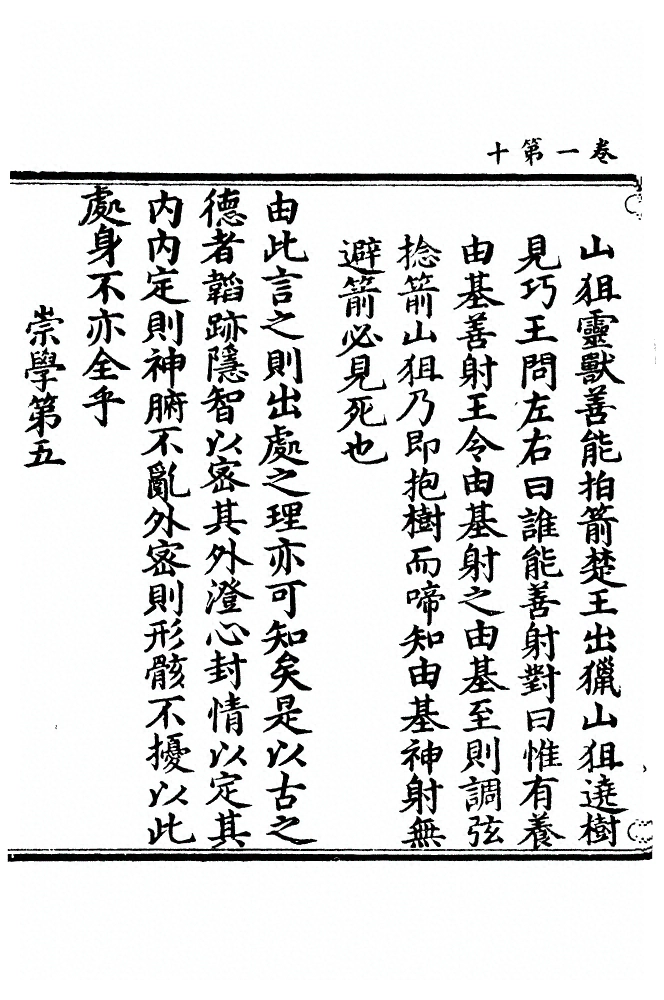 卷一第十
山狙靈獸善能拍箭楚王出獵山狙遶樹
見巧王問左右曰誰能善射對曰惟有養
由基善射王令由基射之由基至則調弦
捻箭山狙乃即抱樹而啼知由基神射無
避箭必見死也
由此言之則出處之理亦可知矣是以古之
德者韜跡隱智以密其外澄心封情以定其
內內定則神腑不亂外密則形骸不擾以此
處身不亦全乎
崇學第五